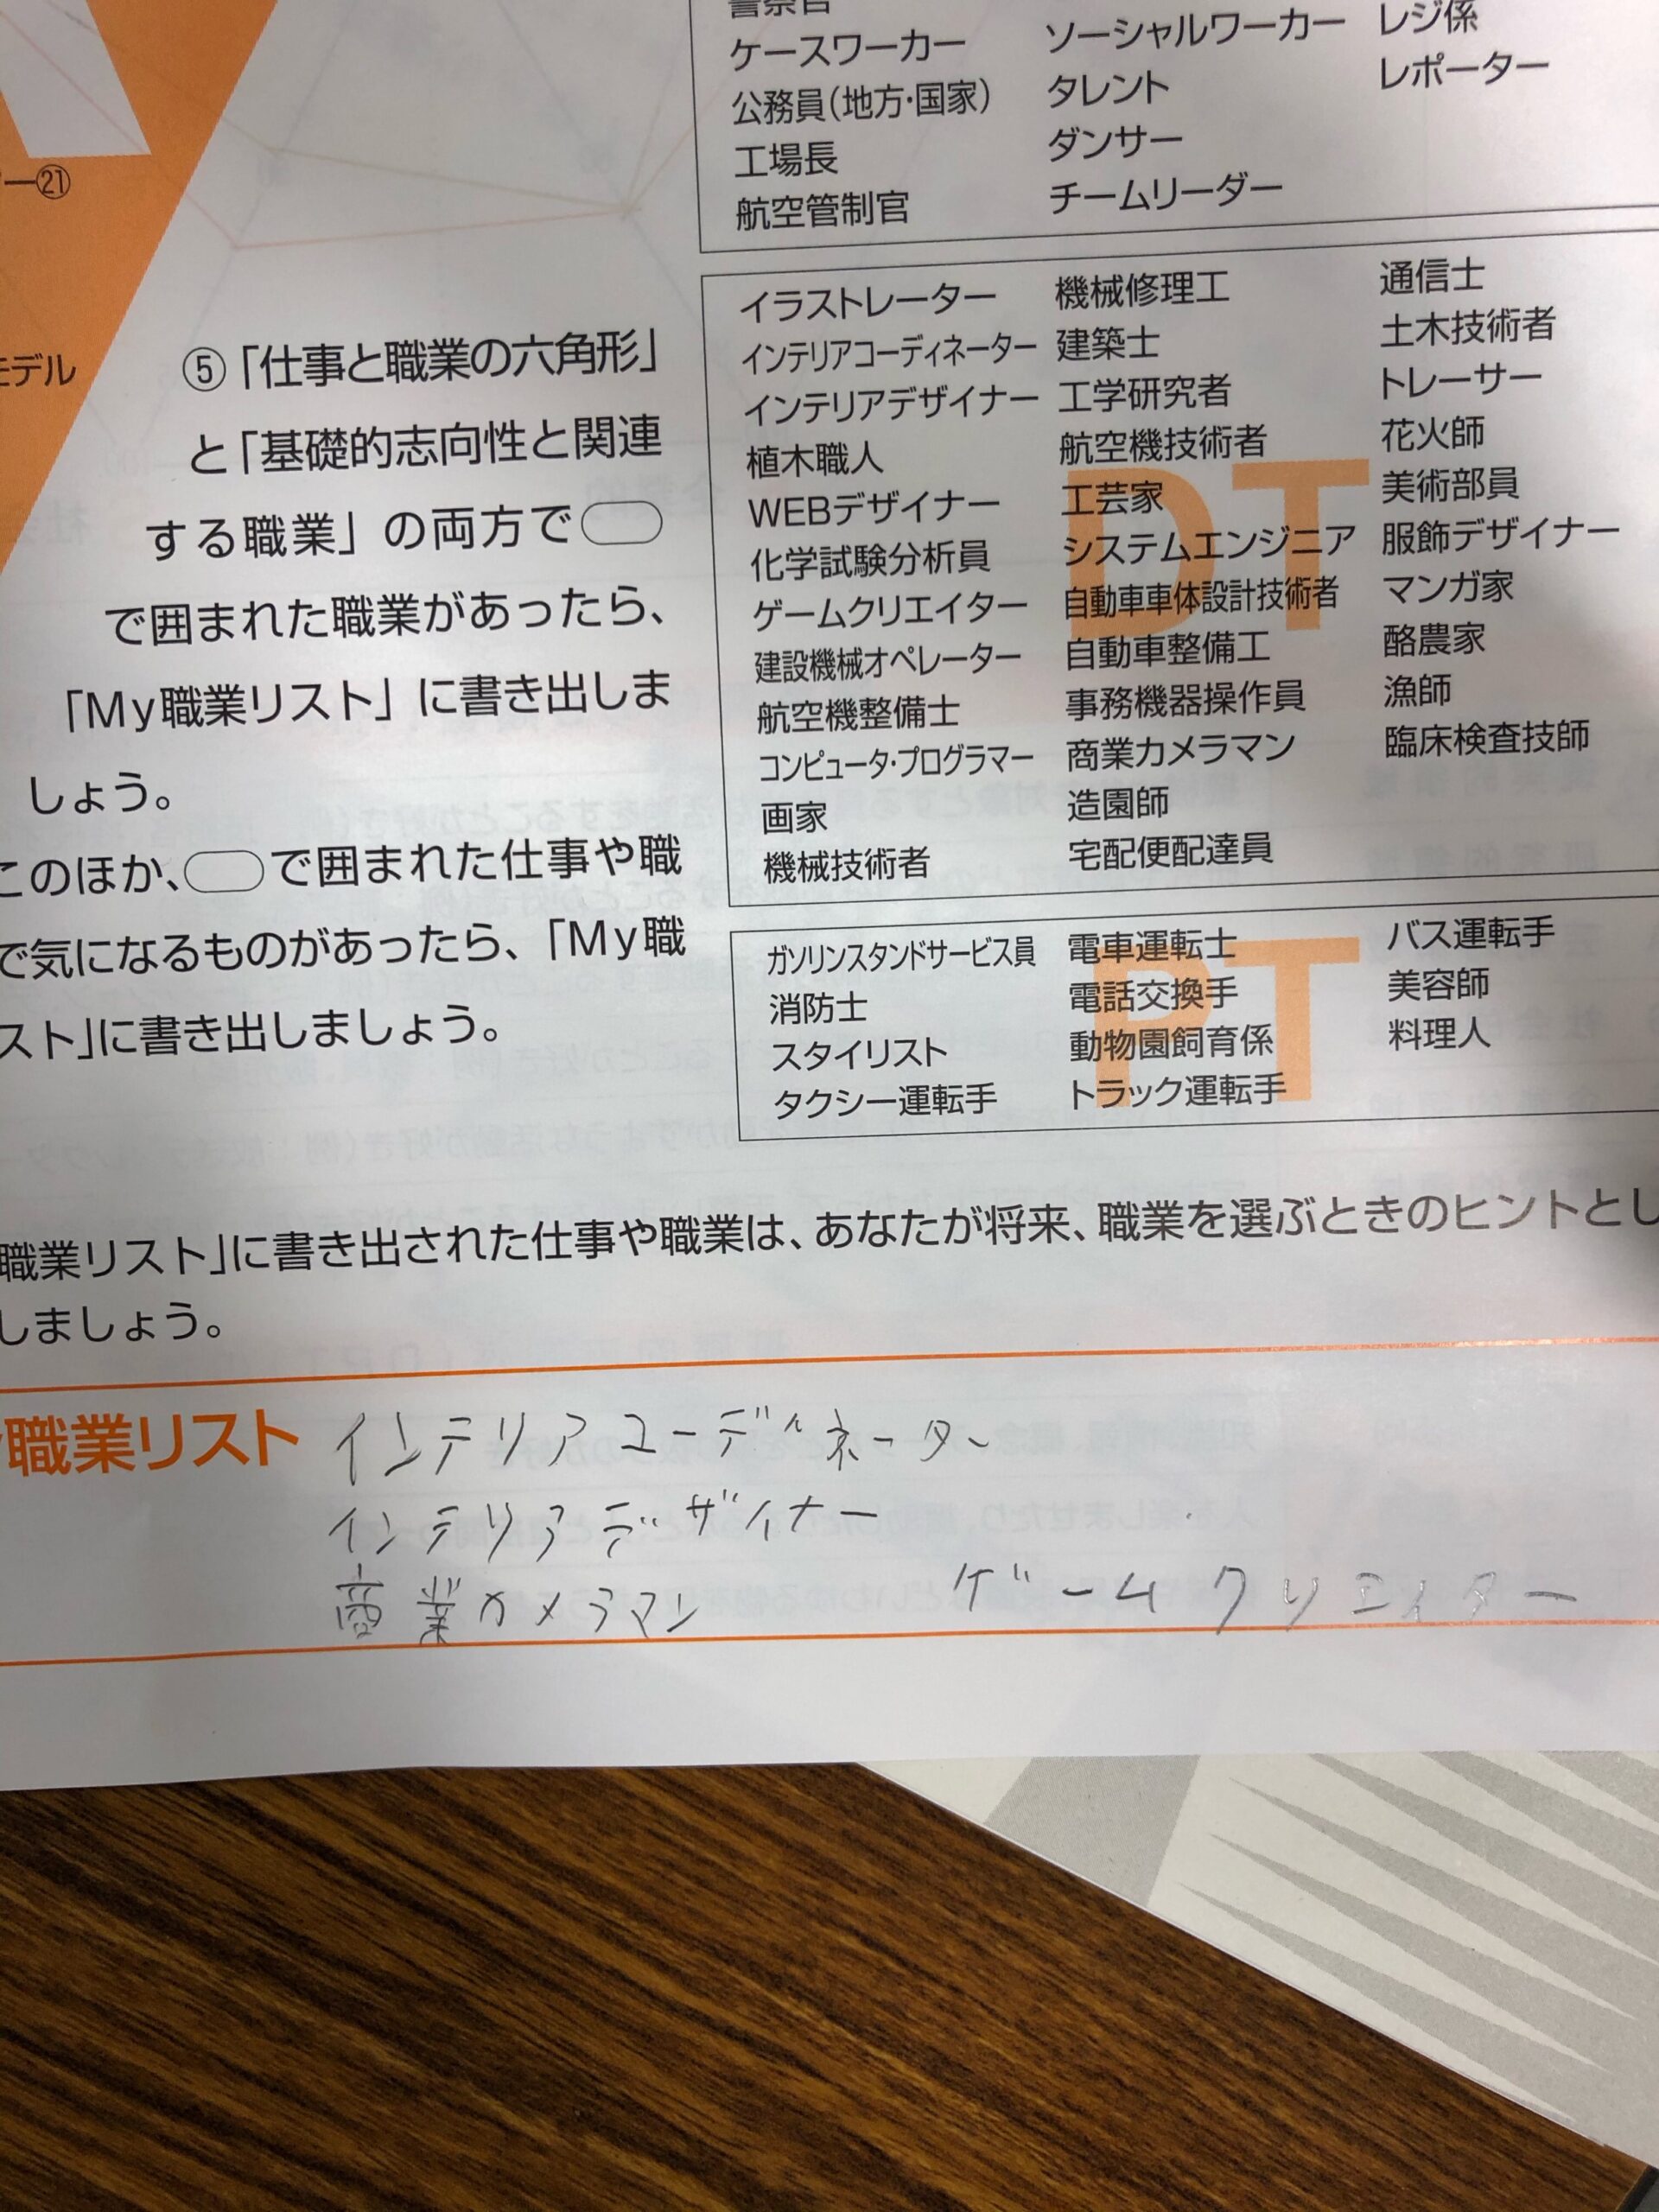 警察官
ケースワーカー
公務員(地方・国家)
工場長
航空管制官
ソーシャルワーカー
タレント
ダンサー
チームリーダー
レジ係
レポーター
ー㉑
モデル
⑤「仕事と職業の六角形」
と「基礎的志向性と関連
する職業」の両方で
で囲まれた職業があったら、
「My職業リスト」に書き出しま
しょう。
このほか、 で囲まれた仕事や職
で気になるものがあったら、「My職
スト」に書き出しましょう。
イラストレーター
インテリアコーディネーター
インテリアデザイナー
植木職人
WEBデザイナー
化学試験分析員
ゲームクリエイター
建設機械オペレーター
航空機整備士
コンピュータ・プログラマー
画家
機械技術者
機械修理工
建築士
工学研究者
航空機技術者
工芸家
システムエンジニア
自動車車体設計技術者
自動車整備工
事務機器操作員
商業カメラマン
造園師
宅配便配達員
通信士
土木技術者
トレーサー
花火師
美術部員
服飾デザイナー
マンガ家
酪農家
漁師
臨床検査技師
DT
ガソリンスタンドサービス員
消防士
スタイリスト
タクシー運転手
電車運転士
電話交換手
動物園飼育係
トラック運転手
バス運転手
美容師
料理人
PT
職業リスト」に書き出された仕事や職業は、あなたが将来、職業を選ぶときのヒントとし
しましょう。
職業リスト
インテリアコーディネーター
インテリアデザイナー
商業カメラマン ゲームクリエイター